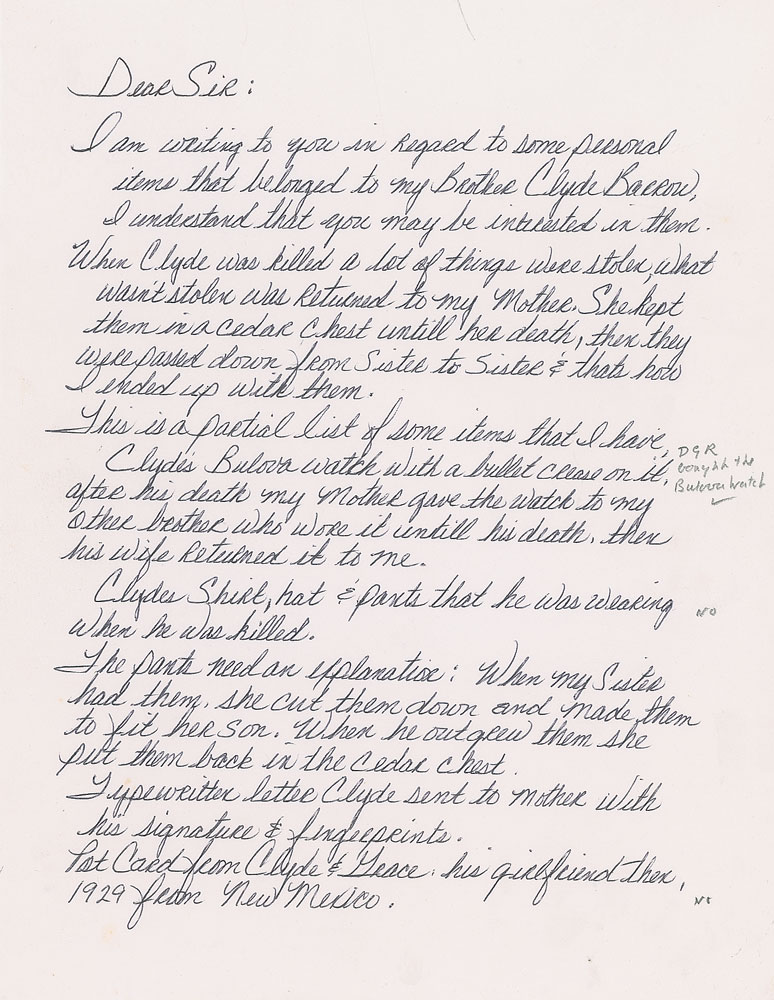 Dear Sir:
I am writing to you in regard to some personal
items that belonged to my Brother Clyde Barrow,
I understand that you may be interested in them.
When Clyde was killed a lot of things were stolen, what
wasn't stolen was Returned to my Mother. She kept
them in a cedar chest untill her death, then they
were passed down from Sister to Sister & thats how
I ended up with them.
This is a partial list of some items that I have,
Clydes Bulova watch with a bullet crease on it,
DGR
bought the
Bulova watch
after his death my Mother gave the watch to my
other brother who wore it untill his death. then
his wife Returned it to me.
Clydes Shirt, hat & pants that he was wearing
NO
when he was killed.
The pants need an explanation: When my Sister
had them. she cut them down and made them
to fit her son. When he outgrew them she
put them back in the cedar chest.
Typewritten letter Clyde sent to Mother with
his signature & fingerprints.
Post Card from Clyde & Grace. his girlfriend then,
1929 from New Mexico.
NO